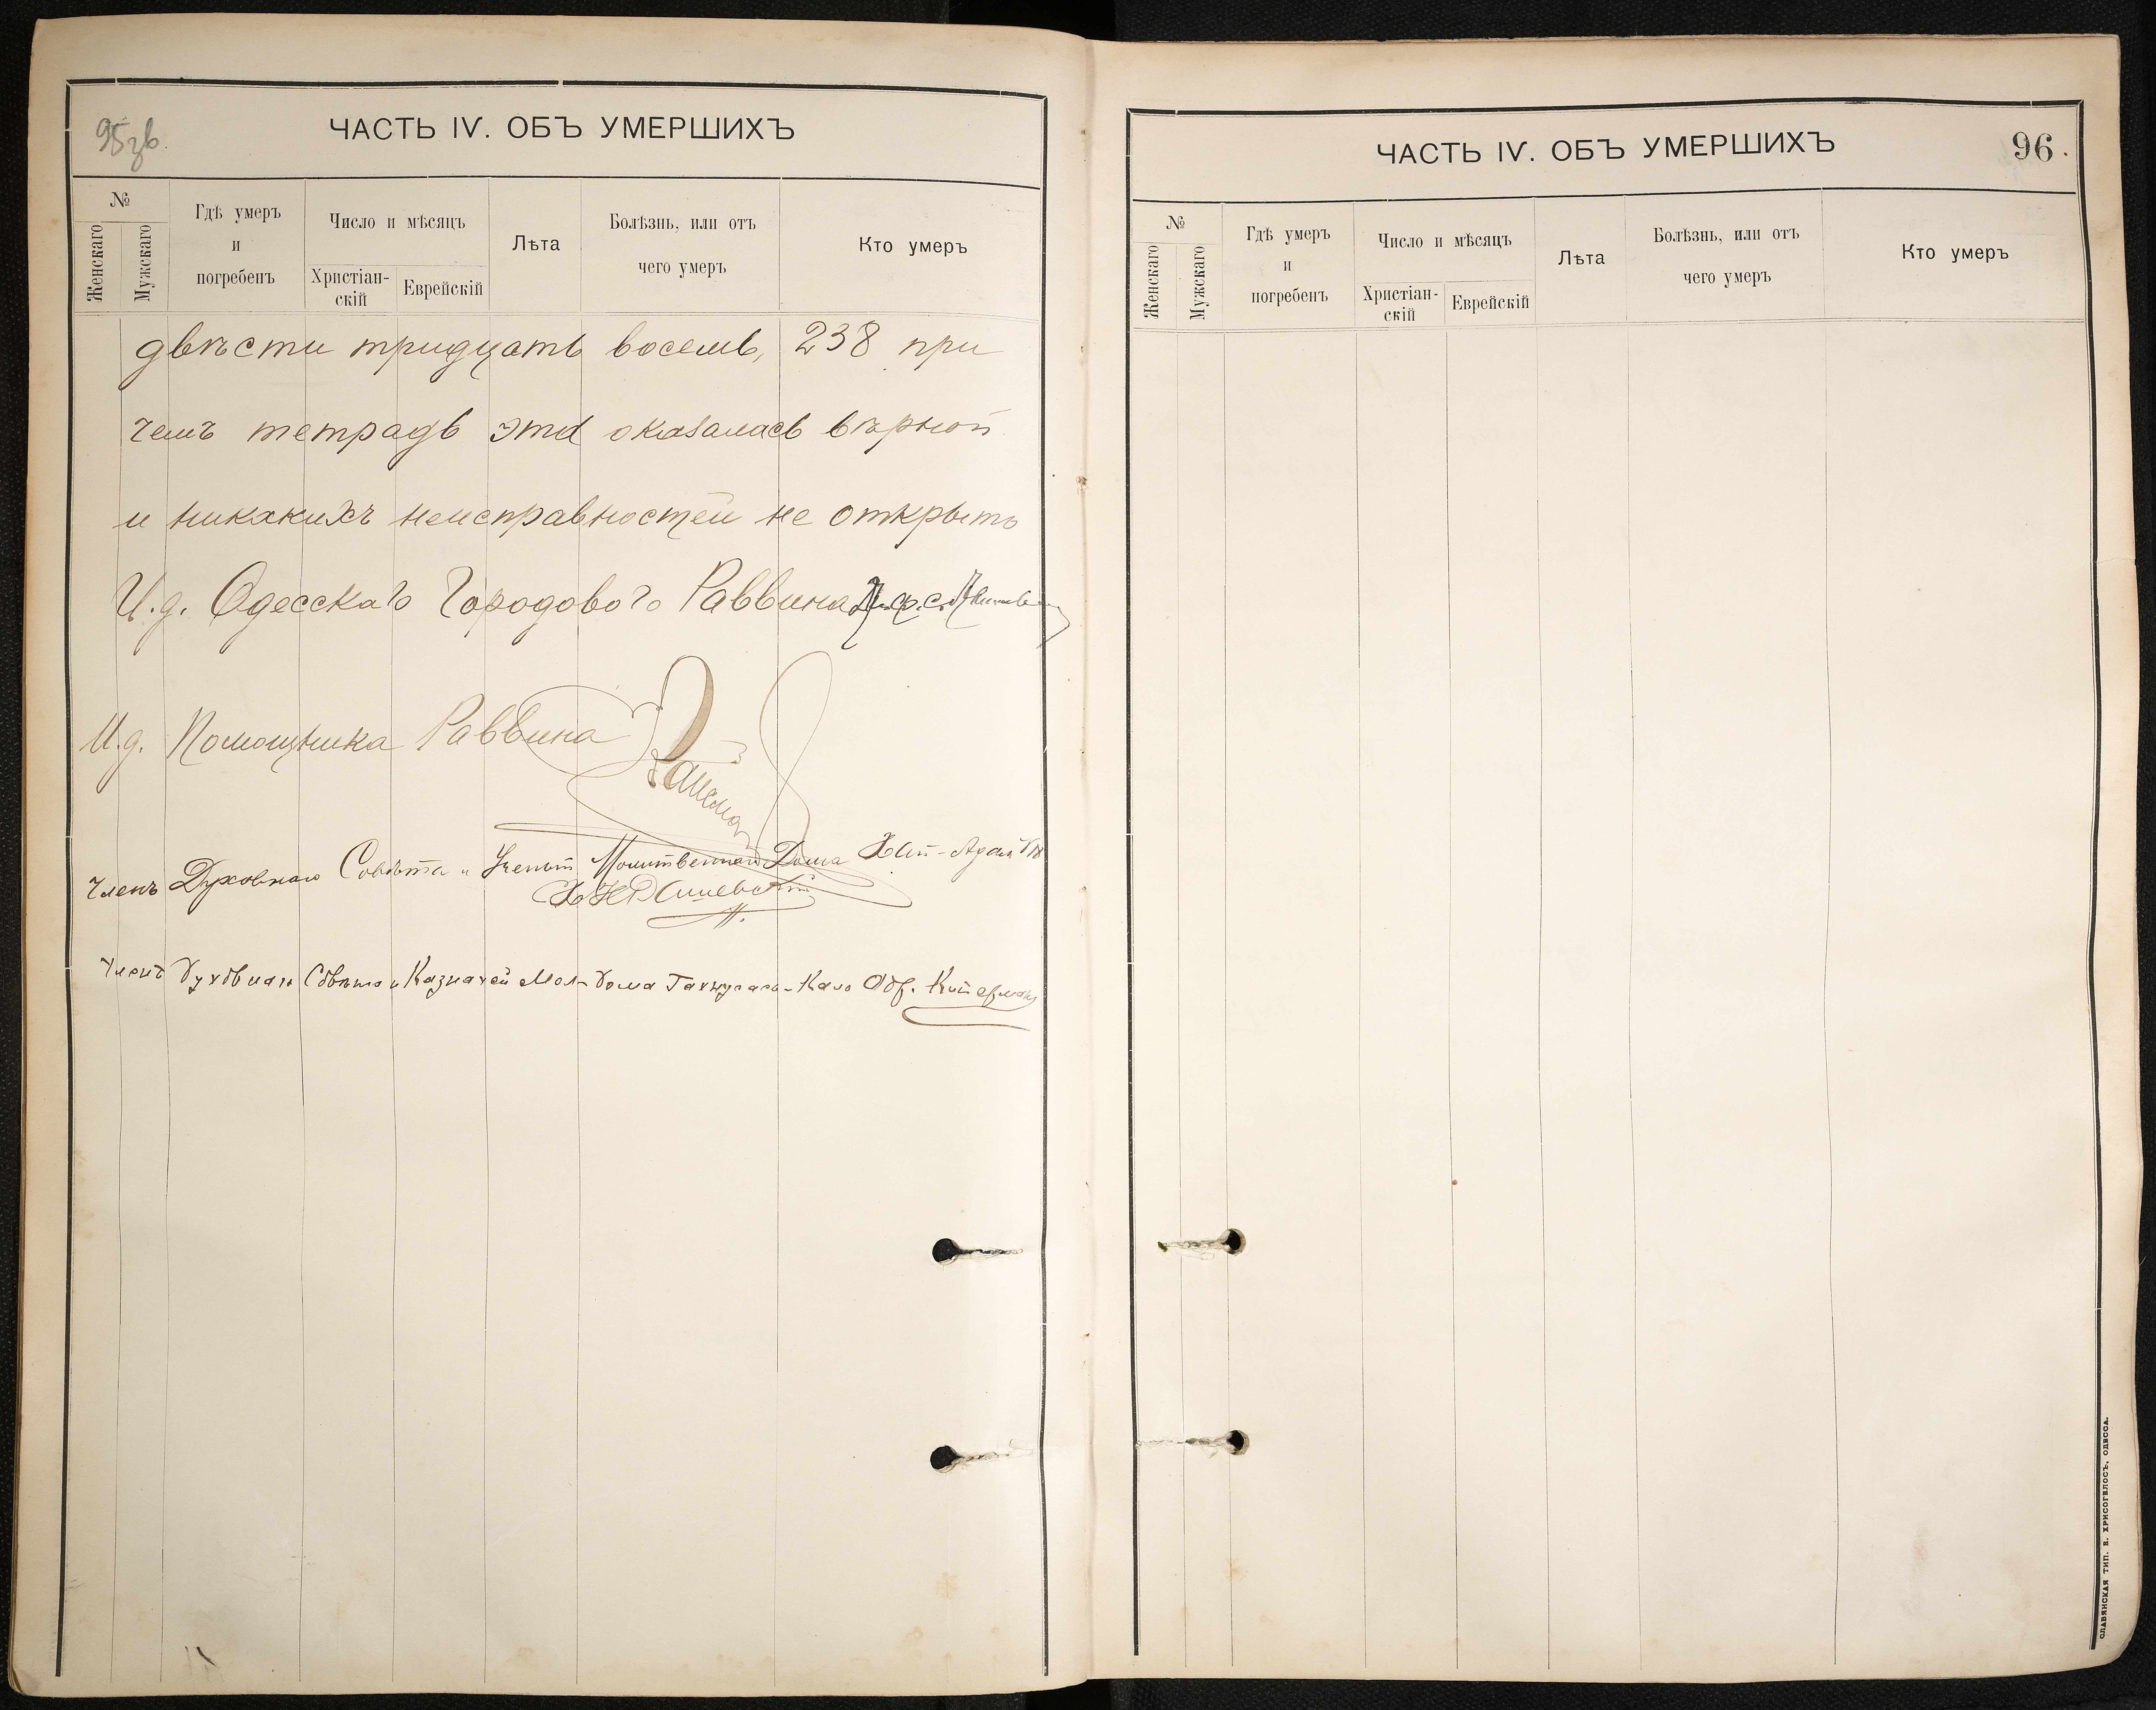 95 зв.
ЧАСТЬ IV. ОБЪ УМЕРШИХЪ
№
Женскаго
Мужскаго
Гдѣ умеръ
и
погребенъ
Число и мѣсяцъ
Христіан-
скій
Еврейскій
Лѣта
Болѣзнь, или отъ
чего умеръ
Кто умеръ
двѣсти тридцать восемь, 238 при
чемъ тетрадь эта оказалась вѣрной
и никакихъ неисправностей не открыто
И.д. Одесскаго Городового Раввина
И.д. Помощника Раввина
Членъ Духовнаго Совѣта и Ученый Молитвеннаго Дома
Членъ Духовнаго Совѣта и Казначей Мол- Дома
96.
ЧАСТЬ IV. ОБЪ УМЕРШИХЪ
№
Женскаго
Мужскаго
Гдѣ умеръ
и
погребенъ
Число и мѣсяцъ
Христіан-
скій
Еврейскій
Лѣта
Болѣзнь, или отъ
чего умеръ
Кто умеръ
СЛАВЯНСКАЯ ТИП. Е. ХРИСОГЕЛОСЪ, ОДЕССА.